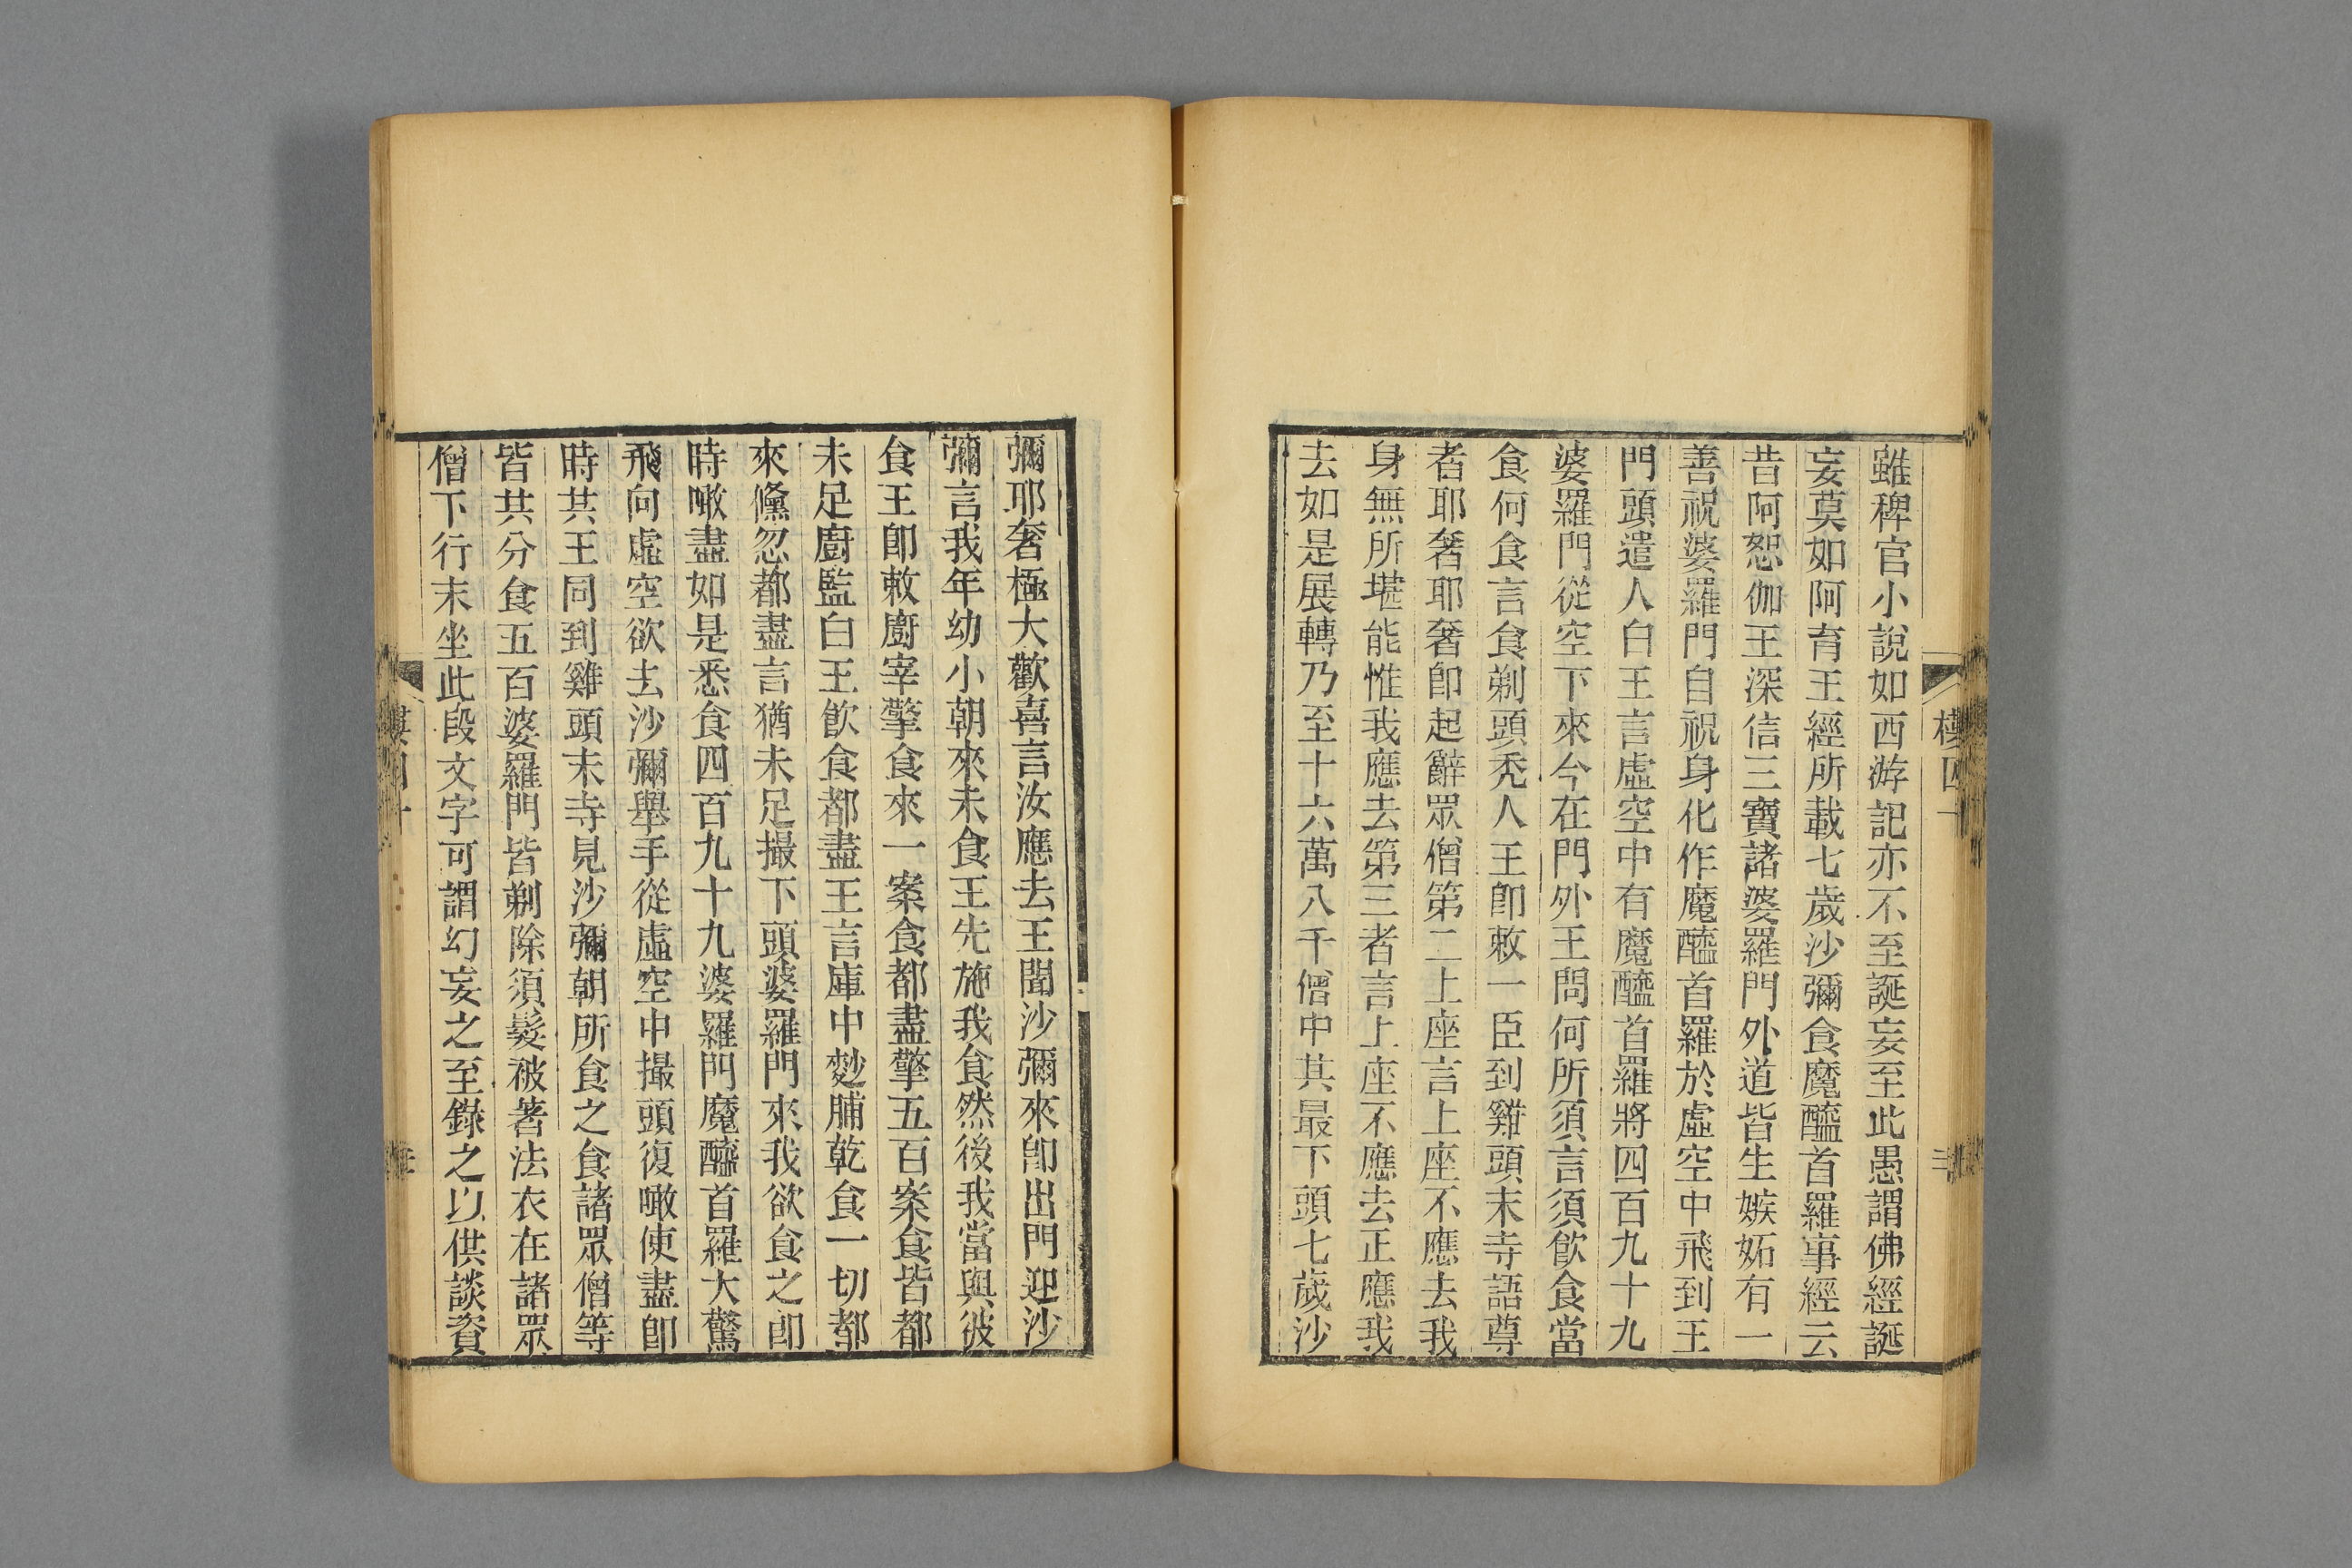 雖稗官小說如西游記亦不至誕妄至此愚謂佛經誕
妄莫如阿育王經所載七歲沙彌食魔醯首羅事經云
昔阿恕伽王深信三寶諸婆羅門外道皆生嫉妬有一
善祝婆羅門自祝身化作魔醯首羅於虛空中飛到王
門頭遣人白王言虛空中有魔醯首羅將四百九十九
婆羅門從空下來今在門外王問何所須言須飮食當
食何食言食剃頭禿人王卽敕一臣到雞頭末寺語尊
者耶奢耶奢卽起辭眾僧第二上座言上座不應去我
身無所堪能惟我應去第三者言上座不應去正應我
去如是展轉乃至十六萬八千僧中其最下頭七歲沙
彌耶奢極大歡喜言汝應去王聞沙彌來卽出門迎沙
彌言我年幼小朝來未食王先施我食然後我當與彼
食王卽敕廚宰擎食來一案食都盡擎五百案食皆都
未足廚監白王飮食都盡王言庫中麨脯乾食一切都
來儵忽都盡言猶未足撮下頭婆羅門來我欲食之卽
時噉盡如是悉食四百九十九婆羅門魔醯首羅大驚
飛向虛空欲去沙彌舉手從虛空中撮頭復噉使盡卽
時共王同到雞頭末寺見沙彌朝所食之食諸眾僧等
皆共分食五百婆羅門皆剃除須髮被著法衣在諸眾
僧下行末坐此段文字可謂幻妄之至錄之以供談資